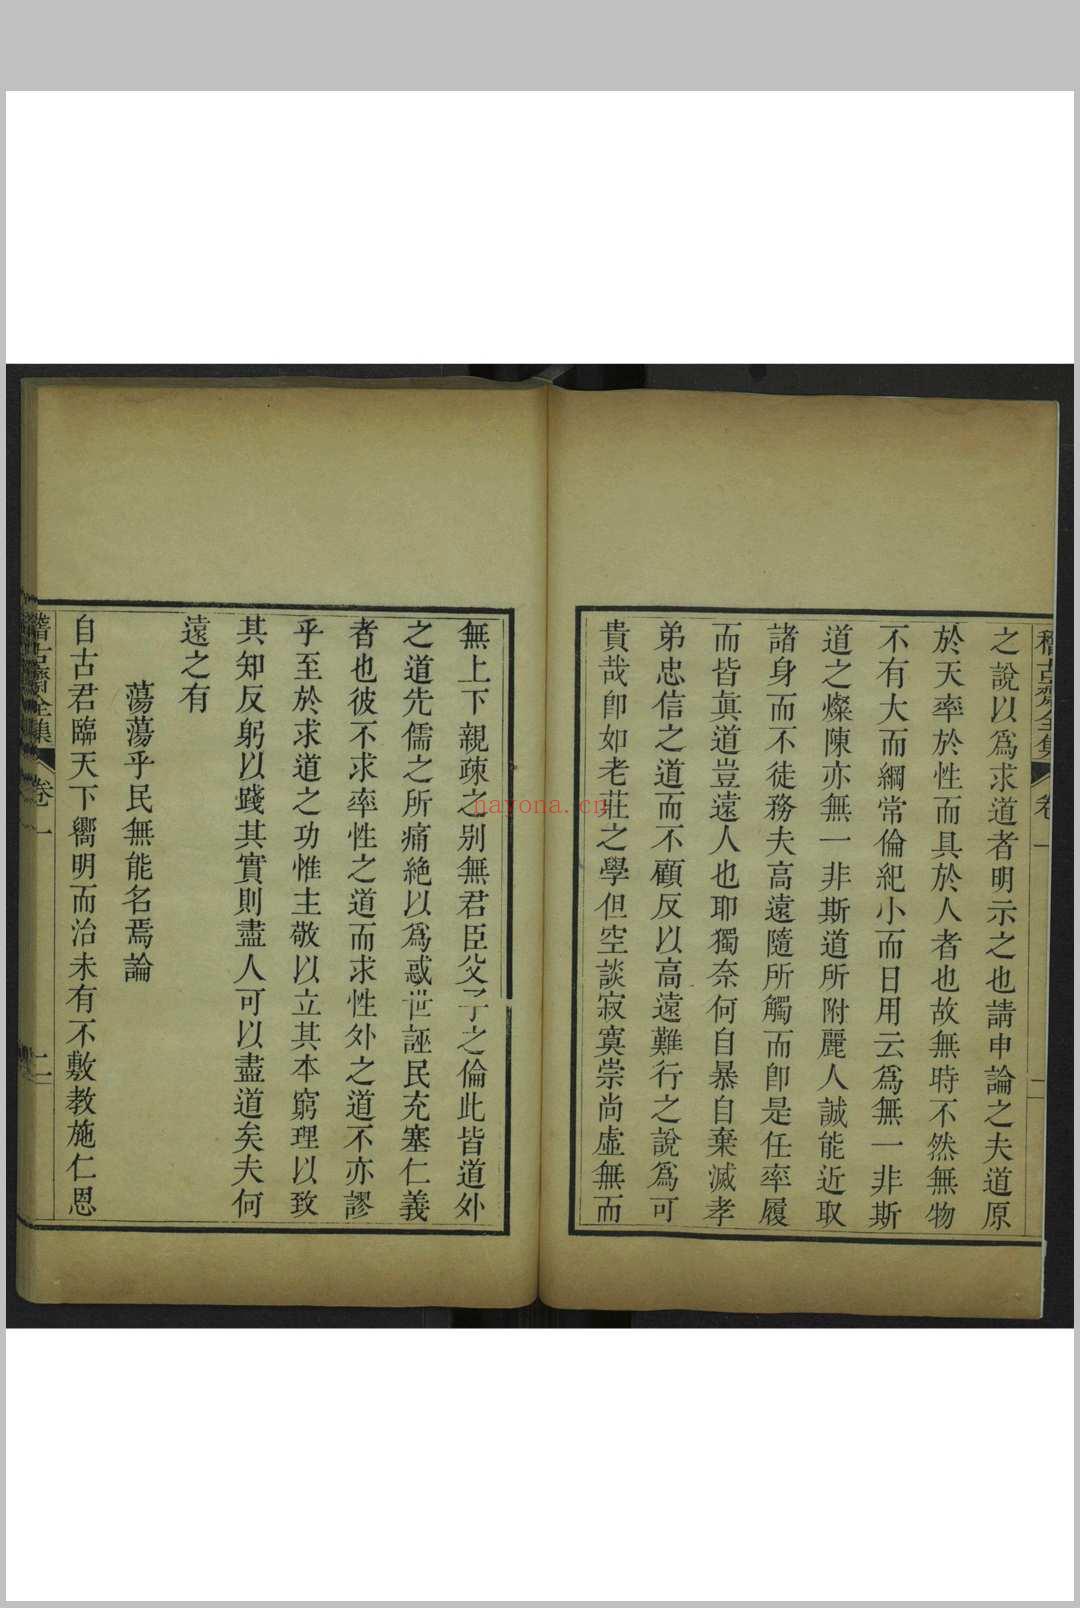 稽古齋全集 卷一 二
之說以爲求道者明示之也請申論之夫道原
於天率於性而具於人者也故無時不然無物
不有大而綱常倫紀小而日用云爲無一非斯
道之燦陳亦無一非斯道所附麗人誠能近取
諸身而不徒務夫高遠隨所觸而卽是任率履
而皆眞道豈遠人也耶獨奈何自暴自棄滅孝
弟忠信之道而不顧反以高遠難行之說爲可
貴哉卽如老莊之學但空談寂寞崇尚虛無而
無上下親疎之别無君臣父子之倫此皆道外
之道先儒之所痛絶以爲惑世誣民充塞仁義
者也彼不求率性之道而求性外之道不亦謬
乎至於求道之功惟主敬以立其本窮理以致
其知反躬以踐其實則盡人可以盡道矣夫何
遠之有
蕩蕩乎民無能名焉論
自古君臨天下嚮明而治未有不敷教施仁恩
稽古齋全集 卷一 二
nayona.cn